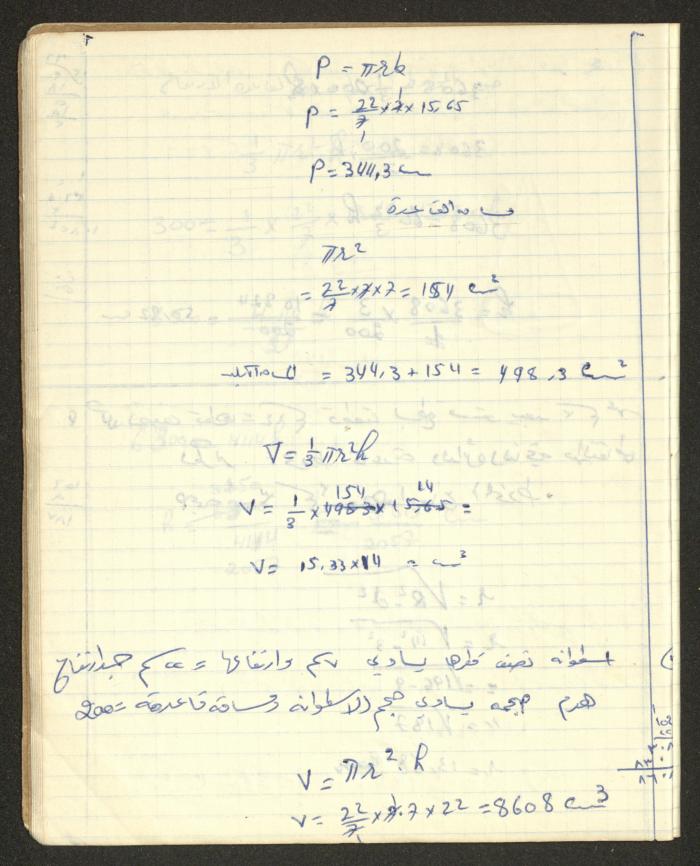 P = πrl
P = 22/7 × 7 × 15,65
P = 344,3 cm
مساحه القاعدة
πr²
= 22/7 × 7 × 7 = 154 cm²
= 344,3 + 154 = 498,3 cm²
V = 1/3 πr²h
V = 1/3 × 154 × 14 =
V = 15,33 × 14 = cm³
اسطوانه نصف قطرها يساوي ٧سم وارتفاعها = ٢٢سم جد ارتفاع
هرم حجمه يساوي حجم الاسطوانه ومساحة قاعدته = 200
V = πr².h
V = 22/7 × 7.7 × 22 = 8608 cm³